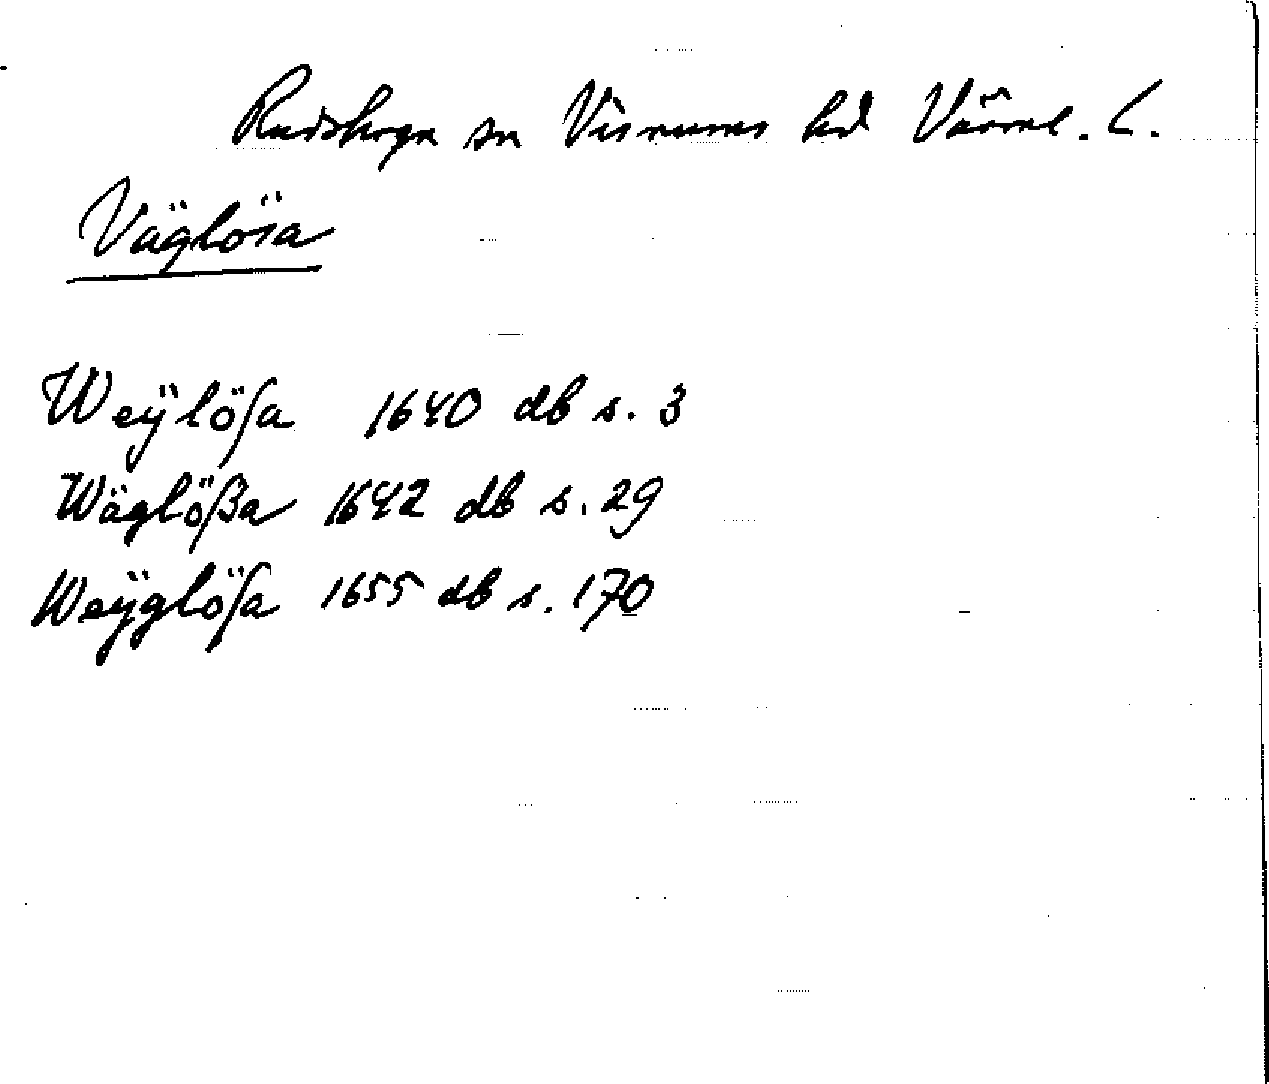 Rudskoga sn Visnums hd Värml. L.
Väglösa
Weÿlöſa 1640 db s. 3
Wäglößa 1642 db s. 29
Weÿglöſa 1655 db s. 170